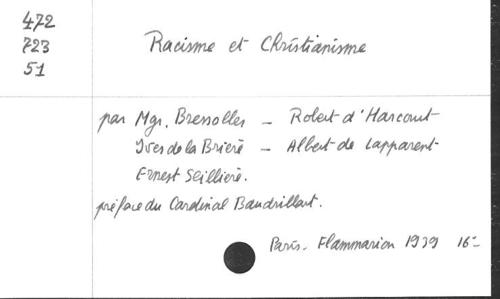 472
723
51
Racisme et Christianisme
par Mgr. Bressolles - Robert d'Harcourt
Yves de la Brière - Albert de Lapparent
Ernest Seillière.
préface du Cardinal Baudrillart.
Paris. Flammarion 1939 16-